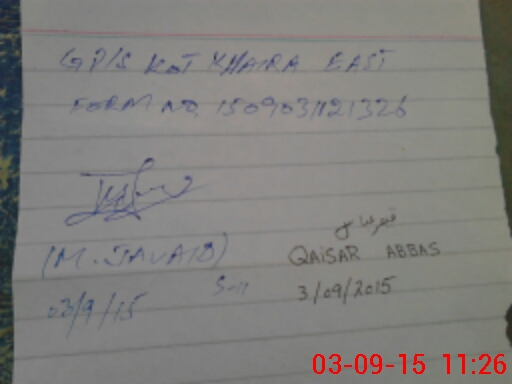 GP/S KOT KHAIRA EAST
FORM NO. 1509031121326
(M. JAVAID)
03/9/15
قیصر عباس
QAISAR ABBAS
3/09/2015
03-09-15 11:26